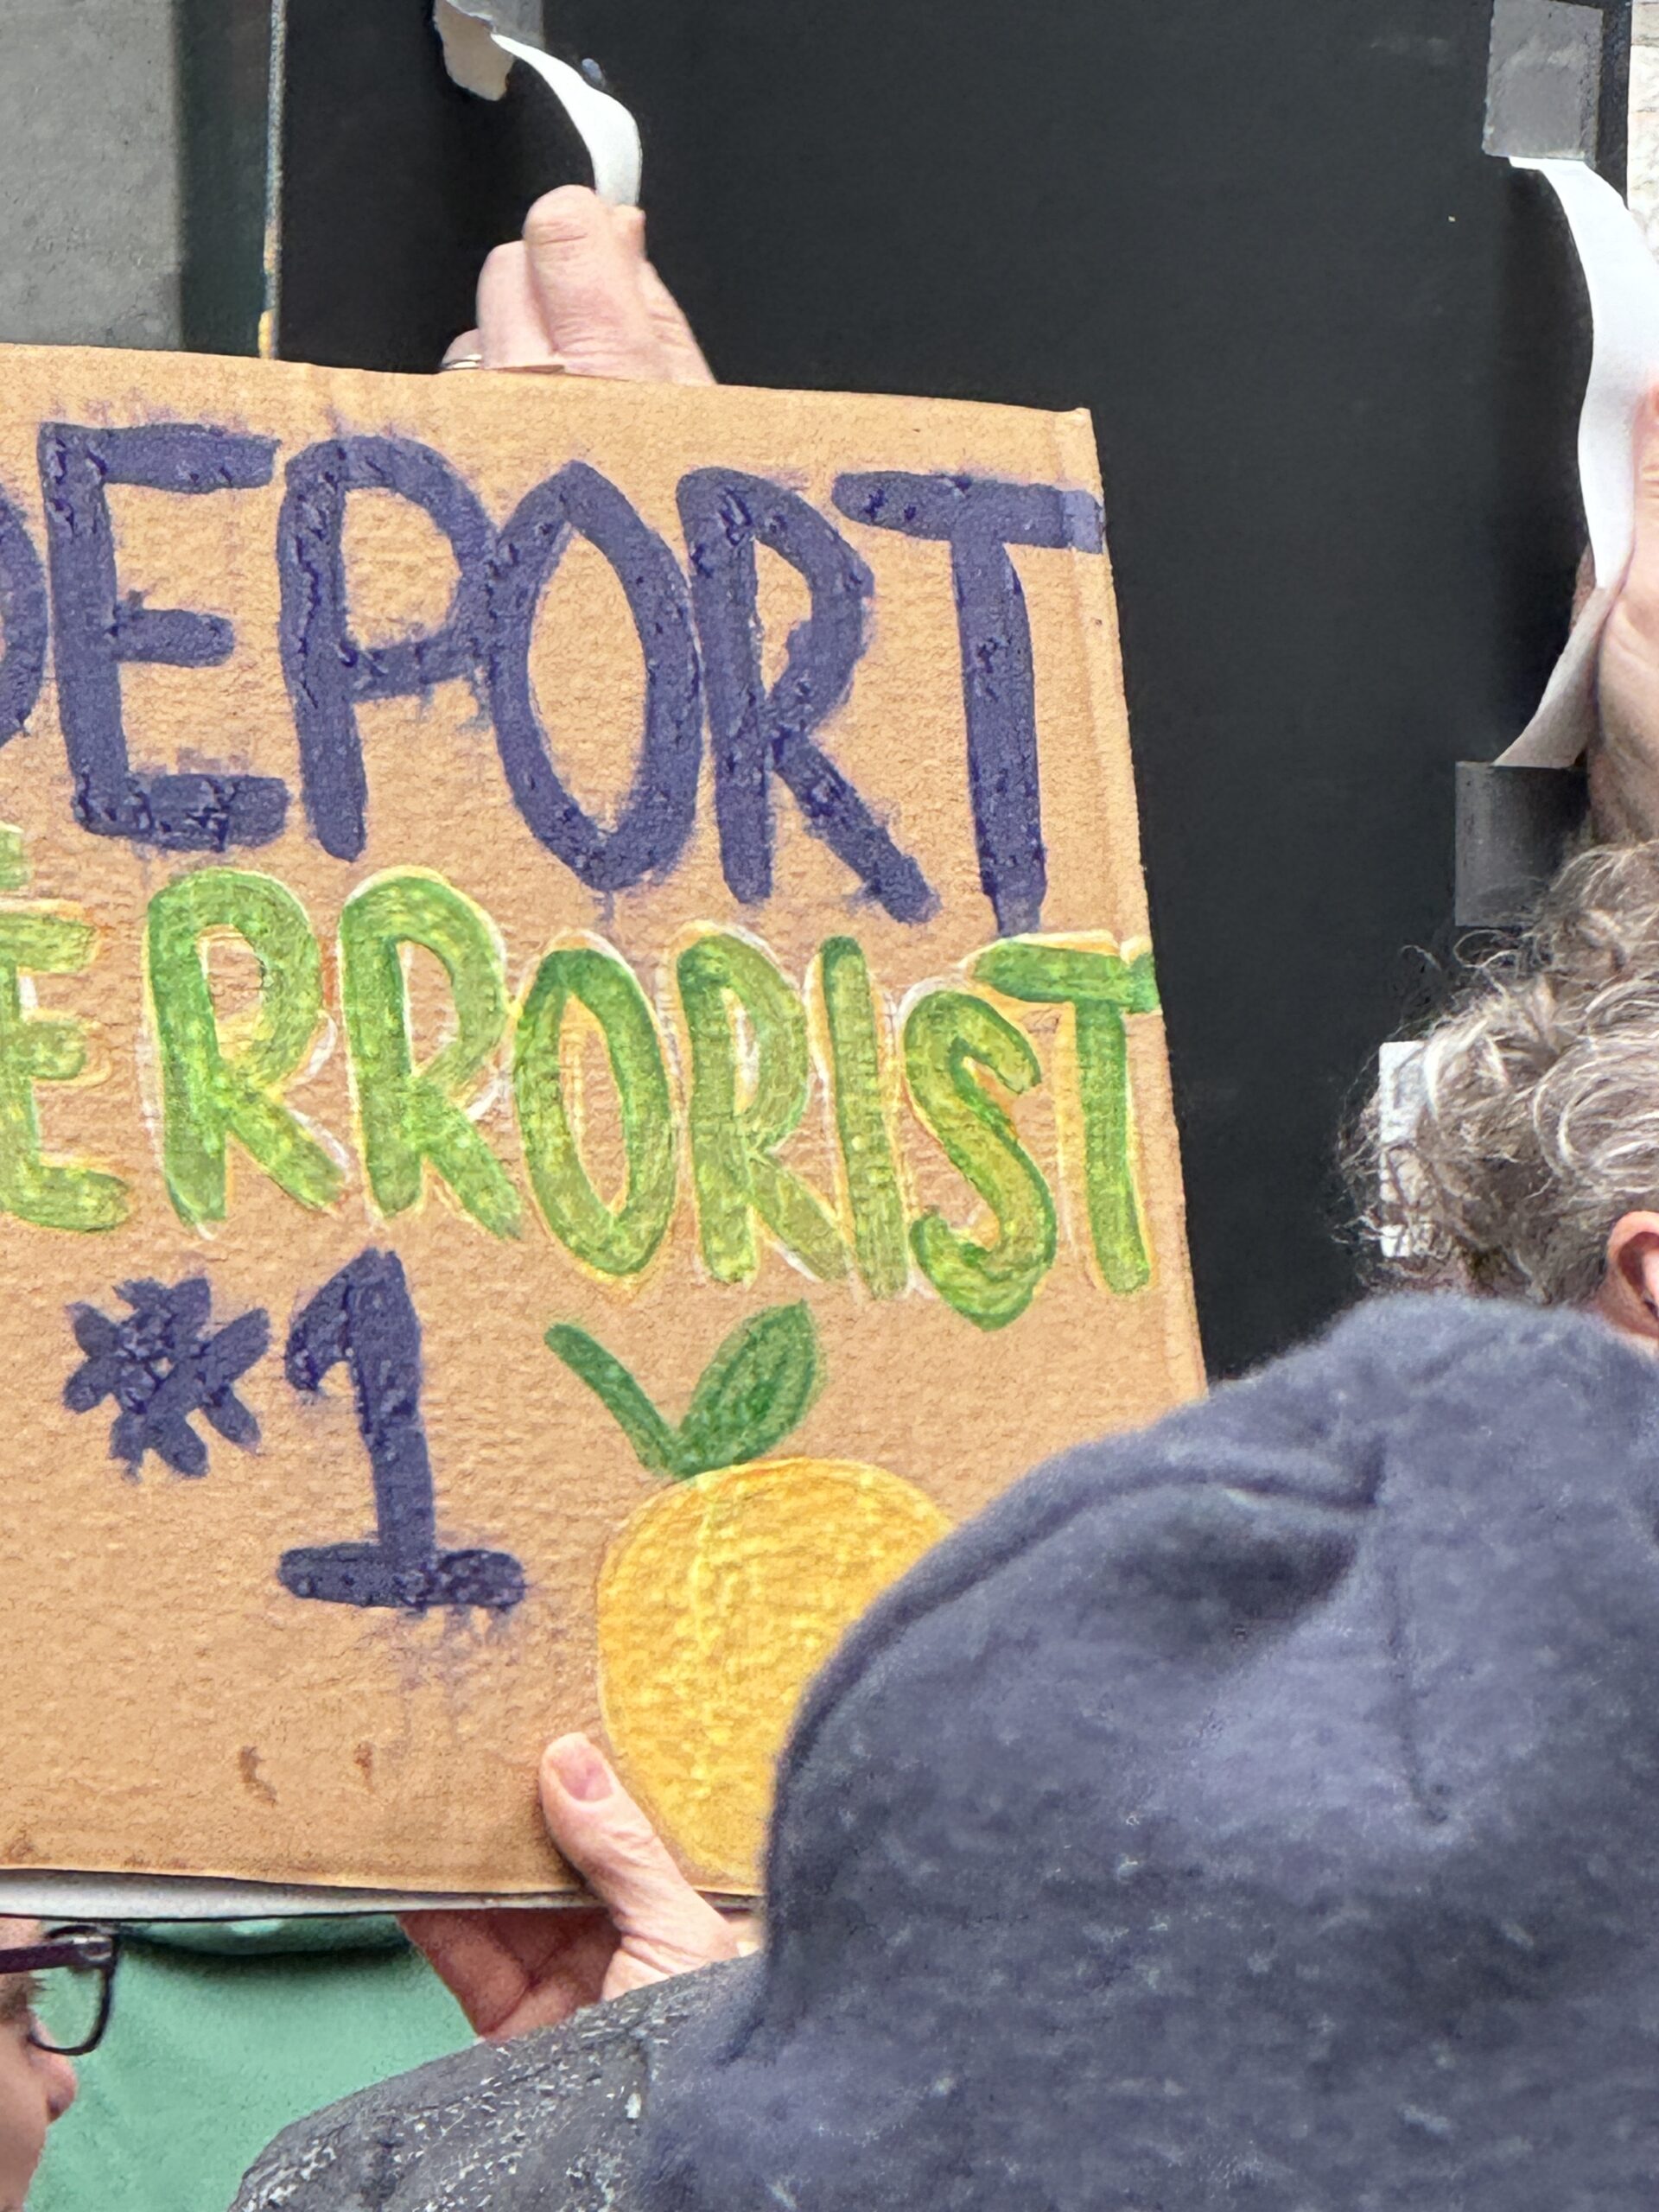 DEPORT
TERRORIST
#1